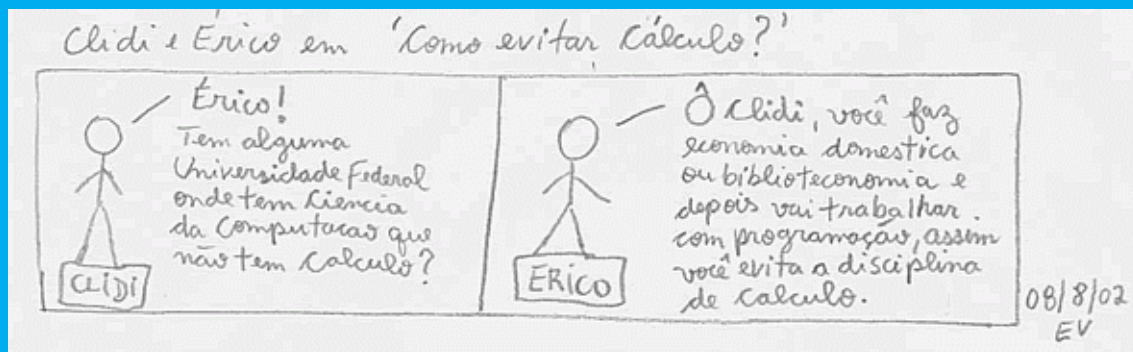 Clidi e Érico em 'Como evitar Cálculo?'
Érico!
Tem alguma
Universidade Federal
onde tem Ciencia
da Computacao que
não tem Calculo?
CLIDI
Ô Clidi, você faz
economia domestica
ou biblioteconomia e
depois vai trabalhar.
com programação, assim
você evita a disciplina
de calculo.
ERICO
08/8/02
EV